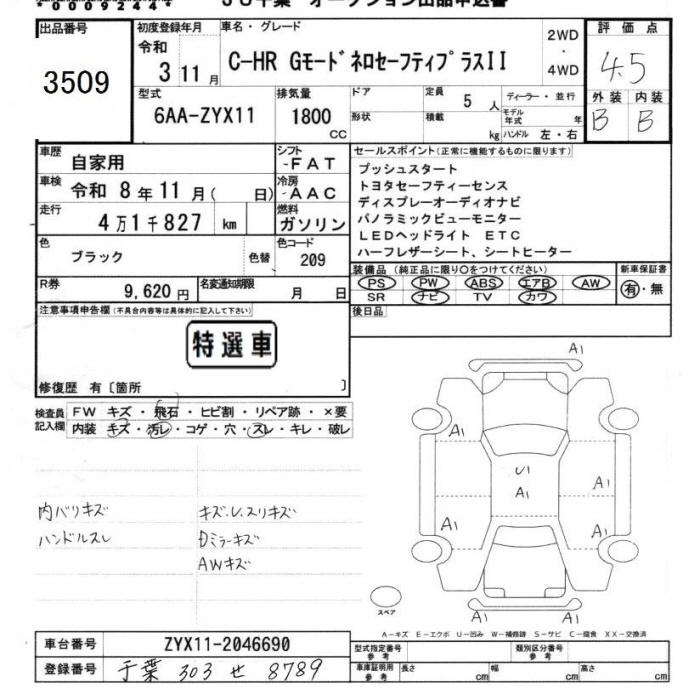 *00092444*
JU千葉 オークション出品申込書
出品番号
3509
初度登録年月
令和
3 11 月
車名・グレード
C-HR GモードネロセーフティプラスⅠⅠ
2WD
・
4WD
評価点
4.5
外装 内装
B B
型式
6AA-ZYX11
排気量
1800
CC
ドア
形状
定員
5 人
積載
kg
ディーラー・並行
モデル年式 年
ハンドル 左・右
車歴
自家用
シフト
-FAT
車検
令和 8年11月( 日)
冷房
-AAC
走行
4万1千827 km
燃料
ガソリン
色
ブラック
色替
色コード
209
R券
9,620 円
名変通知期限
月 日
セールスポイント(正常に機能するものに限ります)
プッシュスタート
トヨタセーフティーセンス
ディスプレーオーディオナビ
パノラミックビューモニター
LEDヘッドライト ETC
ハーフレザーシート、シートヒーター
装備品(純正品に限り○をつけてください)
PS PW ABS エアB AW
SR ナビ TV カワ
新車保証書
有・無
後日品
注意事項申告欄(不具合内容等は具体的に記入して下さい)
特選車
修復歴 有〔箇所 〕
検査員
記入欄
FW キズ・飛石・ヒビ割・リペア跡・×要
内装 キズ・汚レ・コゲ・穴・スレ・キレ・破レ
内バリキズ
ハンドルスレ
キズ.U.スリキズ
Dミラーキズ
AWキズ
A1
A1
A1
U1
A1
A1
A1
A1
A1
スペア
A-キズ E-エクボ U-凹み W-補修跡 S-サビ C-腐食 XX-交換済
車台番号
ZYX11-2046690
登録番号
千葉 303 せ 8789
型式指定番号
参考
類別区分番号
参考
車庫証明用
参考
長さ cm
幅 cm
高さ cm